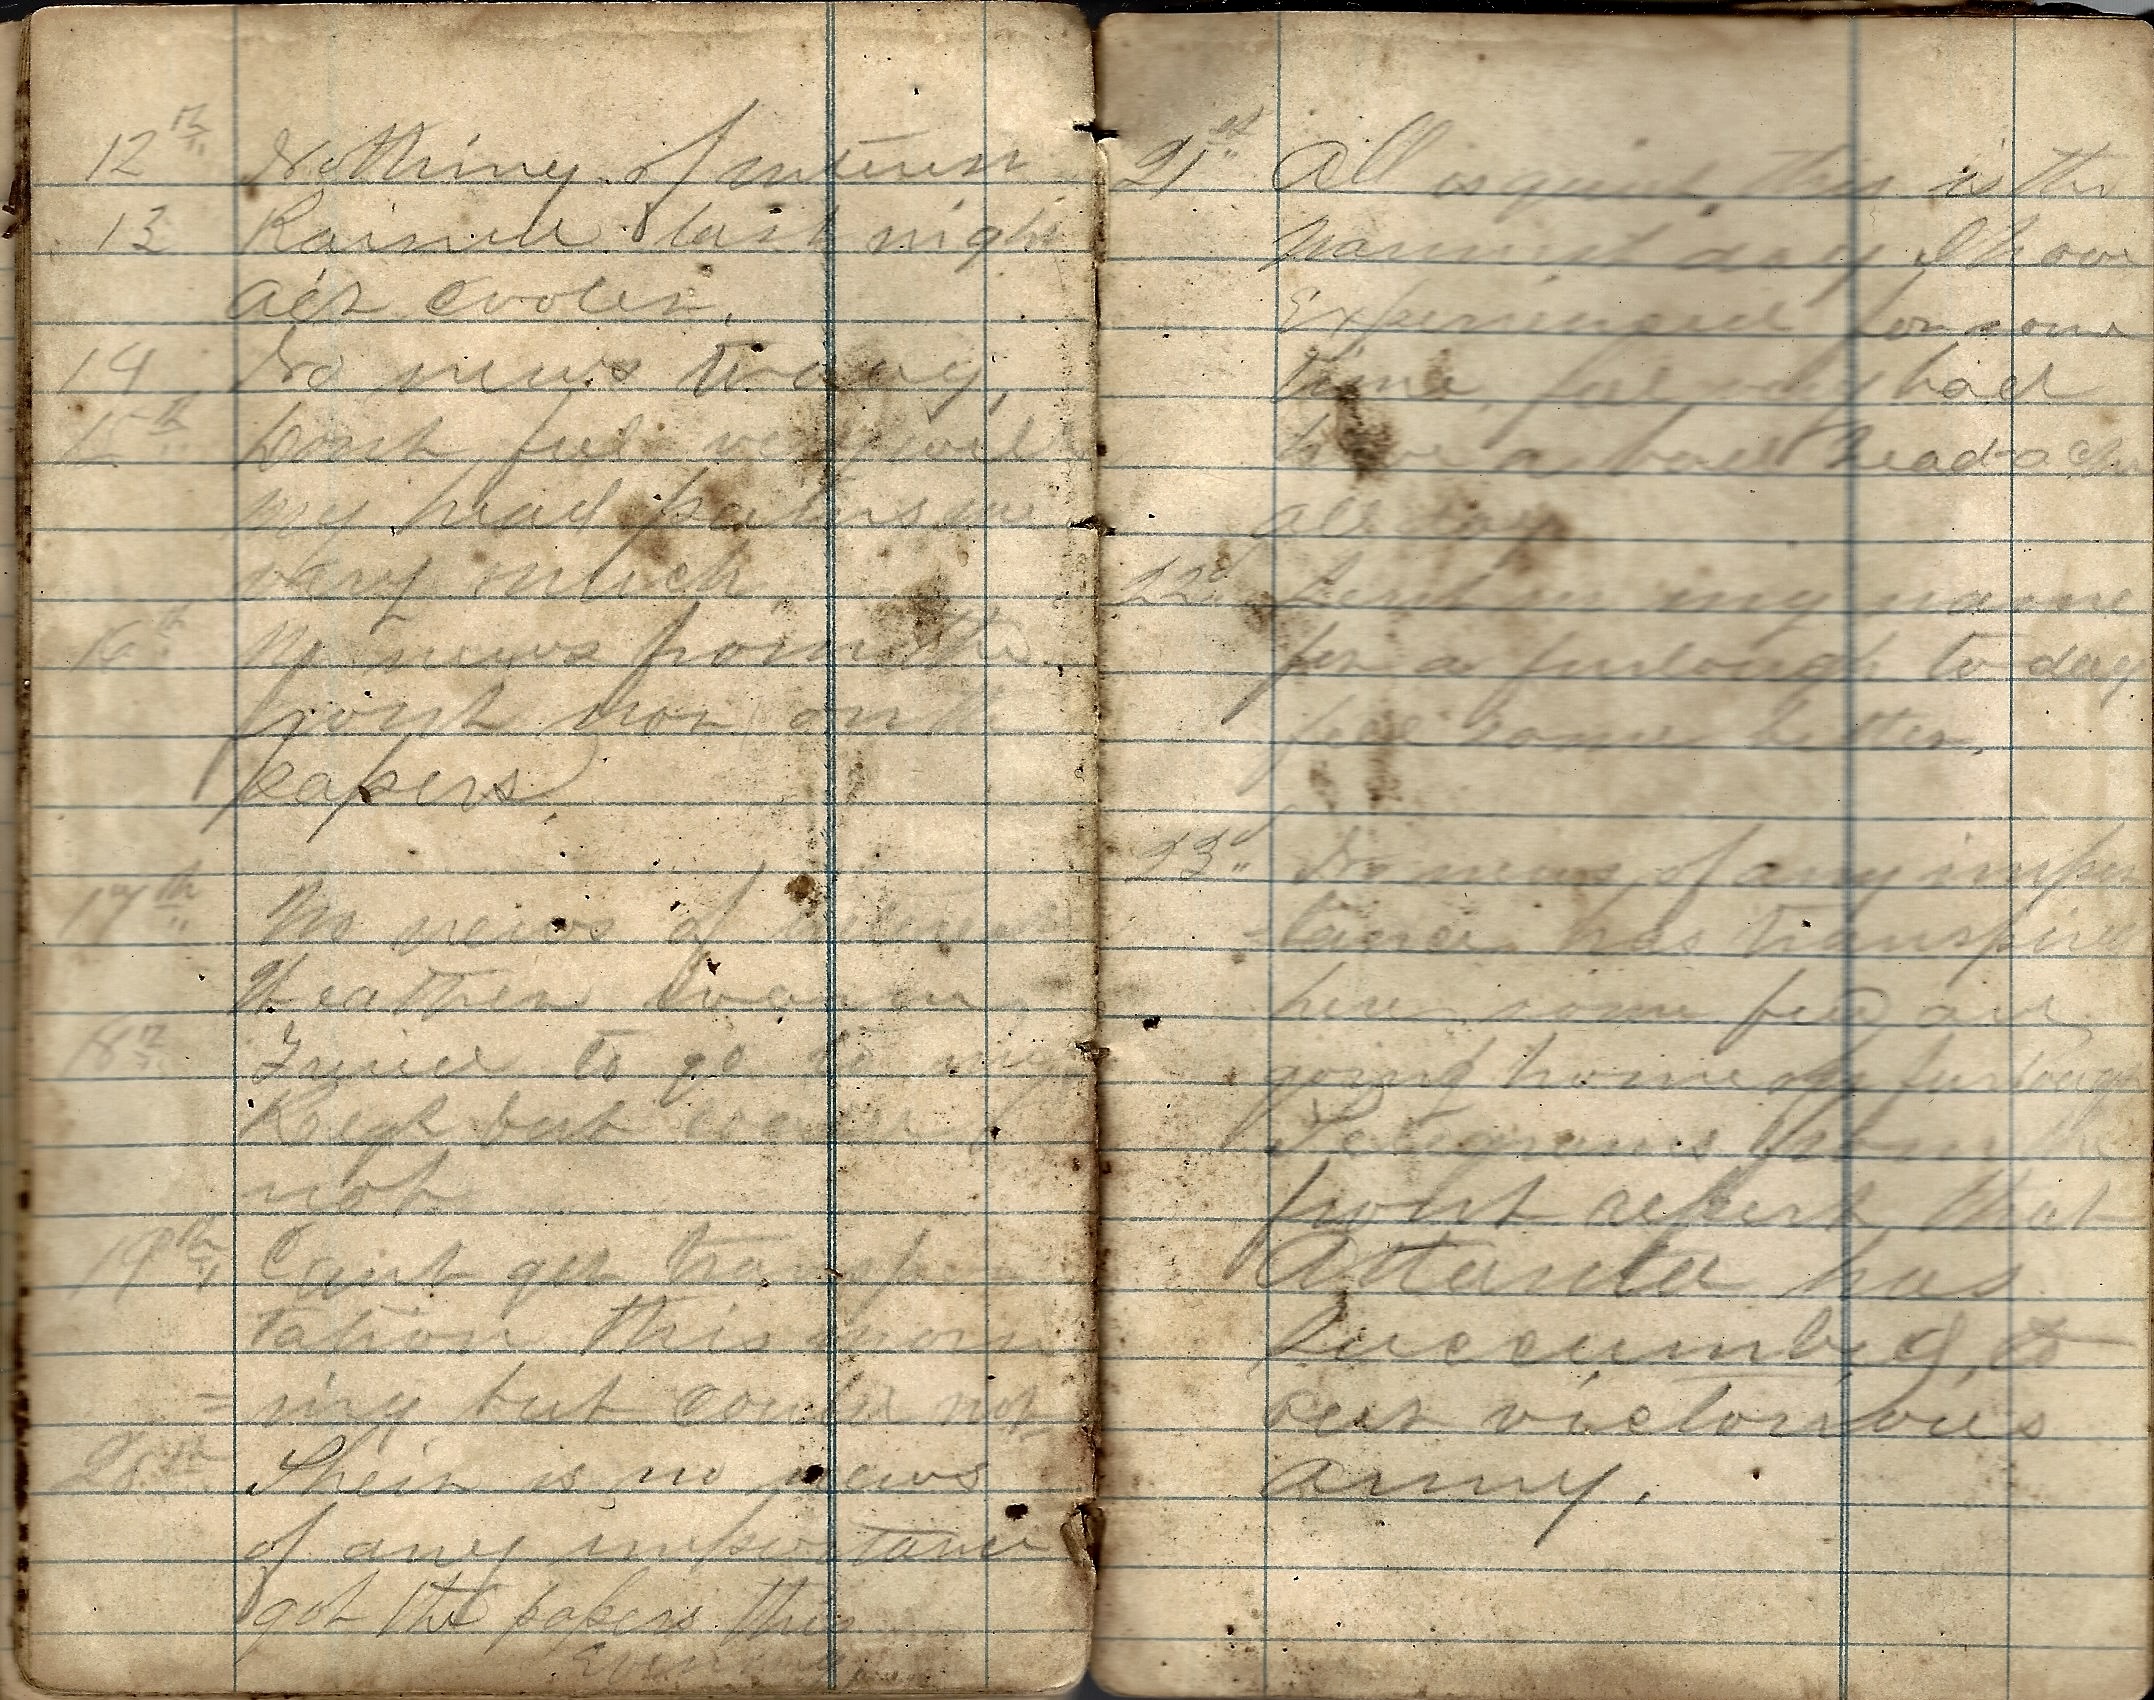 12th Nothing of interest
13 Rained last night
air cooler.
14 No news to day,
15th Dont feel very well
my head pains me
very much
16th No news from the
front nor in the
papers
17th No news of interest
Weather warm
18th Tried to go to my
Regt but could
not
19th Cant get transp
tation this mor
= ning but could not
20th Their is no news
of any importance
got the papers this
Evening
21st All is quiet this is the
warmest day I have
Experienced for some
time, feel very bad
have a bad headache
all day
22d Sent in my name
for a furlough to day
feel some better.
23d No news of any impor
= tance has transpired
here some few are
going home off furlough
Telegrams from the
front report that
Atlanta has
succumbed to
our victorious
army.